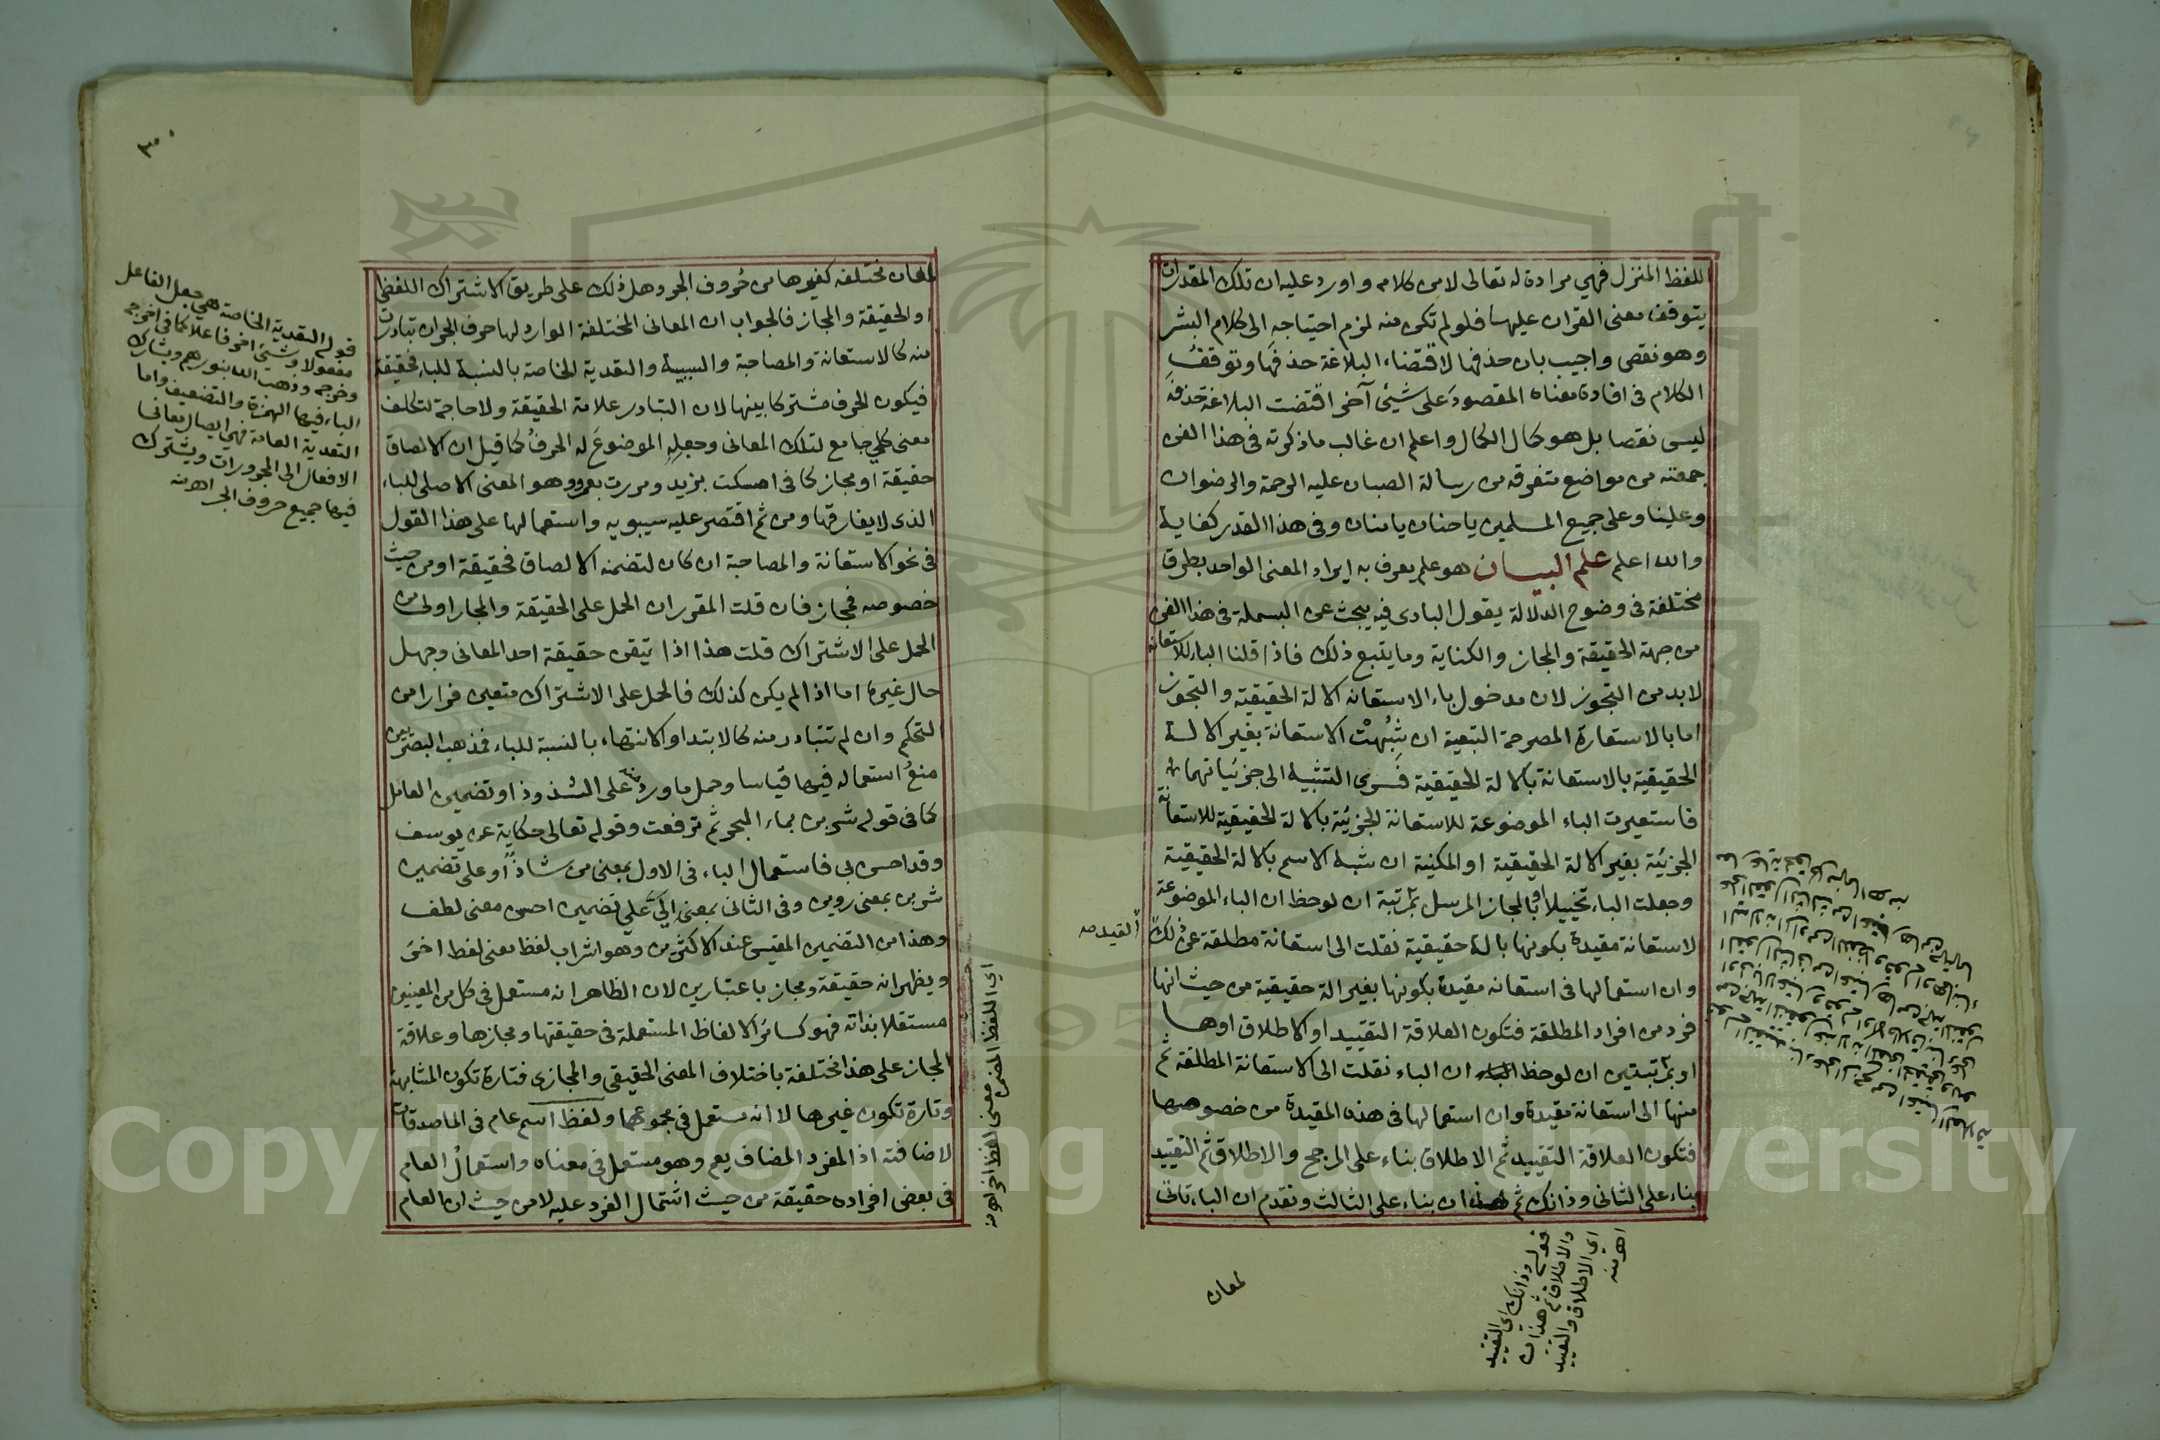 اللفظ المنزل فهي مرادة له تعالى لا من كلامه واورد عليه ان تلك المقدرات
يتوقف معنى القران عليها فلو لم تكن منه لزم احتياجه الى كلام البشر
وهو نقص واجيب بان حذفها لاقتضاء البلاغة حذفها وتوقف
الكلام فى افادة معناه المقصود على شيئ آخر اقتضت البلاغة حذفه
ليس نقصا بل هو كمال الكمال واعلم ان غالب ما ذكرته فى هذا الفن
جمعته من مواضع متفرقة من رسالة الصبان عليه الرحمة والرضوان
وعلينا وعلى جميع المسلمين يا حنان يا منان وفى هذا القدر كفاية
والله اعلم علم البيان هو علم يعرف به ايراد المعنى الواحد بطرق
مختلفة فى وضوح الدلالة يقول البادى فيه يبحث عن البسملة فى هذا الفن
من جهة الحقيقة والمجاز والكناية وما يتبع ذلك فاذا قلنا الباء للاستعانة
لا بد من التجوز لان مدخول باء الاستعانه الالة الحقيقية والتجوز
اما بالاستعارة المصرحة التبعية ان شبهت الاستعانة بغير الالة
الحقيقية بالاستعانة بالالة الحقيقية فسرى التشبيه الى جزئياتهما
فاستعيرت الباء الموضوعة للاستعانة الجزئية بالالة الحقيقية للاستعانة
الجزئية بغير الالة الحقيقية او المكنية ان شبه الاسم بالالة الحقيقية
وجعلت الباء تخييلا او بالمجاز المرسل بمرتبة ان لوحظ ان الباء الموضوعة
لاستعانة مقيدة بكونها بالة حقيقية نقلت الى استعانة مطلقة عن ذلك
القيد صه
وان استعمالها فى استعانه مقيدة بكونها بغير الة حقيقية من حيث انها
فرد من افراد المطلقة فتكون العلاقة التقييد او الاطلاق او هما
او بمرتبتين ان لوحظ ان الباء نقلت الى الاستعانة المطلقة ثم
منها الى استعانة مقيدة وان استعمالها فى هذه المقيدة من خصوصها
فتكون العلاقة التقييد ثم الاطلاق بناء على المرجح والاطلاق ثم التقييد
بناء على الثانى وذانك ثم هذان بناء على الثالث وتقدم ان الباء تأتى
لمعان
قوله وذانك اي التقييد
والاطلاق ثم هذان
اي الاطلاق والتقييد
اهـ منه
لمعان مختلفه كغيرها من حروف الجر وهل ذلك على طريق الاشتراك اللفظى
او الحقيقة والمجاز فالجواب ان المعانى المختلفة الوارد لها حرف الجر ان تبادرت
منه كالاستعانة والمصاحبة والسببية والتعدية الخاصة بالنسبة للباء فحقيقة
فيكون الحرف مشتركا بينها لان التبادر علامة الحقيقة ولا حاجة لتكلف
معنى كلي جامع لتلك المعانى وجعله الموضوع له الحرف كما قيل ان الالصاق
حقيقة او مجاز كما فى امسكت بزيد ومررت بعمرو وهو المعنى الاصلى للباء
الذى لا يفارقها ومن ثم اقتصر عليه سيبويه واستعمالها على هذا القول
فى نحو الاستعانة والمصاحبة ان كان لتضمنه الالصاق فحقيقة او من حيث
خصوصه فمجاز فان قلت المقرر ان الحمل على الحقيقة والمجاز اولى من
الحمل على الاشتراك قلت هذا اذا تيقن حقيقة احد المعانى وجهل
حال غيره اما اذا لم يكن كذلك فالحمل على الاشتراك متعين فرارا من
التحكم وان لم تتبادر منه كالابتداء والانتهاء بالنسبة للباء فمذهب البصريين
منع استعماله فيها قياسا وحمل ما ورد منه على الشذوذ او تضمين العامل
كما فى قوله شربن بماء البحر ثم ترفعت وقوله تعالى حكاية عن يوسف
وقد احسن بى فاستعمال الباء فى الاول بمعنى من شاذ او على تضمين
شربن بمعنى روين وفى الثانى بمعنى الى او على تضمين احسن معنى لطف
وهذا من التضمين المقيس عند الاكثرين وهو اشراب لفظ معنى لفظ اخر
ويظهر انه حقيقة ومجاز باعتبارين لان الظاهر انه مستعمل فى كل من المعنيين
مستقلا بذاته فهو كسائر الالفاظ المستعملة فى حقيقتها ومجازها وعلاقة
المجاز على هذا مختلفة باختلاف المعنى الحقيقى والمجازى فتارة تكون المشابهة
وتارة تكون غيرها لا انه مستعمل فى مجموعهما ولفظ اسم عام فى الماصدقات
لاضافته اذ المفرد المضاف يعم وهو مستعمل فى معناه واستعمال العام
فى بعض افراده حقيقة من حيث اشتمال الفرد عليه لا من حيث ان العام
اي اللفظ المضمن
معنى لفظ اخر اهـ منه
قوله التعدية الخاصة هي جعل الفاعل
مفعولا وشيئ اخر فاعلا كما فى اخرجه
وخرج به وذهب الله بنورهم وتشارك
الباء فيها الهمزة والتضعيف واما
التعدية العامة فهي ايصال معانى
الافعال الى المجرورات ويشترك
فيها جميع حروف الجر اهـ منه
٣٠
Copyright © King Saud University